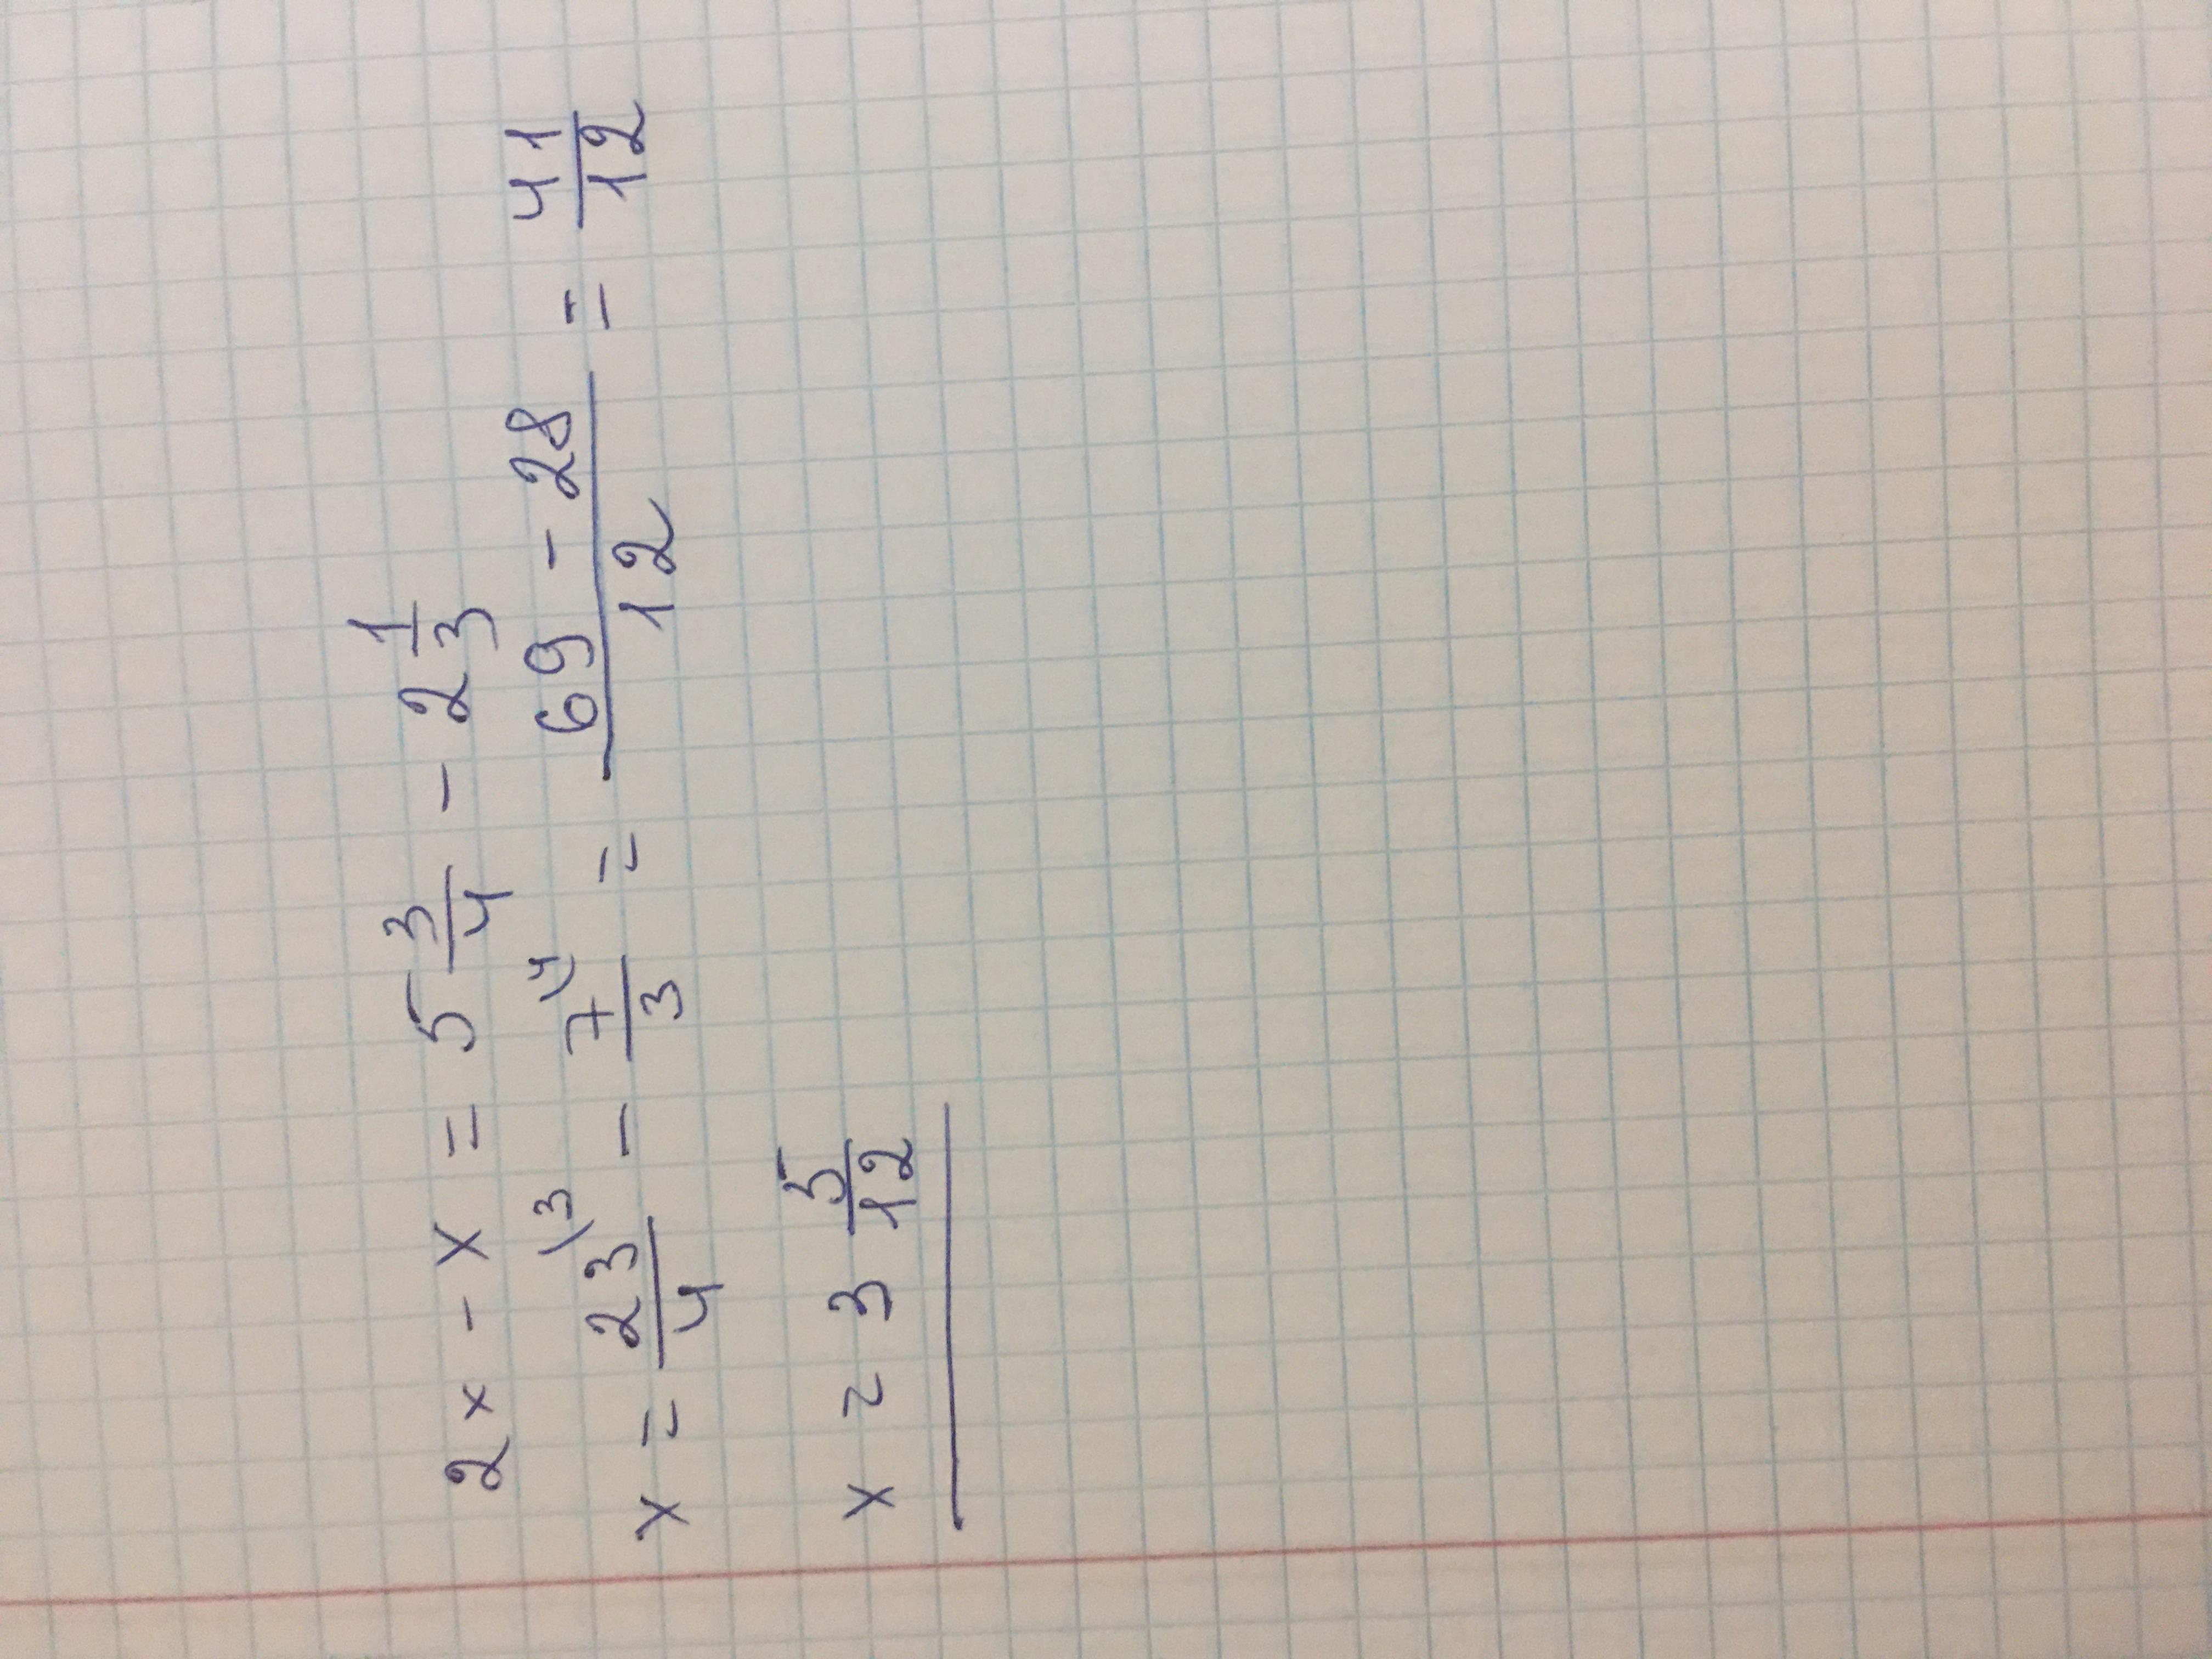 2x - x = 5 3/4 - 2 1/3
x = 23/4 \3 - 7/3 \4 = (69 - 28)/12 = 41/12
x = 3 5/12